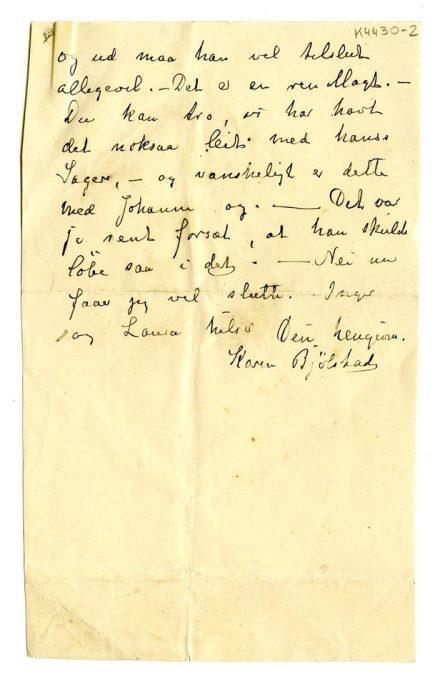 K4430-2
og ud maa han vel tilslut
allegevel. – Det er en ren Plage. –
Du kan tro, vi har havt
det noksaa leit med hans
Sager, – og vanskeligt er dette
med Johann og. – Det var
jo rent forsæt, at han skulde
løbe saa i det. – Nei nu
faar jeg vel slutte. Inger
og Laura hilser Din hengivne.
Karen Bjölstad